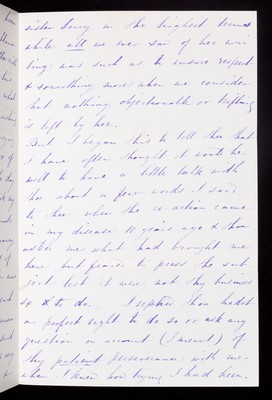 sister Lucy in the highest terms
while all we ever saw of her wri
ting was such as to ensure respect
& something more when we consider
that nothing objectionable or trifling
is left by her.
But I began this to tell thee that
I have often thought it would be
well to have a little talk with
thee about a few words I said
to thee when the re-action came
in my disease 10 years ago & thou
asked me what had brought me
here but feared to press the sub
ject lest it were not thy business
so to do. I replied thou hadst
a perfect right to do so or ask any
question on account (I meant) of
thy patient perseverance with me
when I knew how trying I had been.